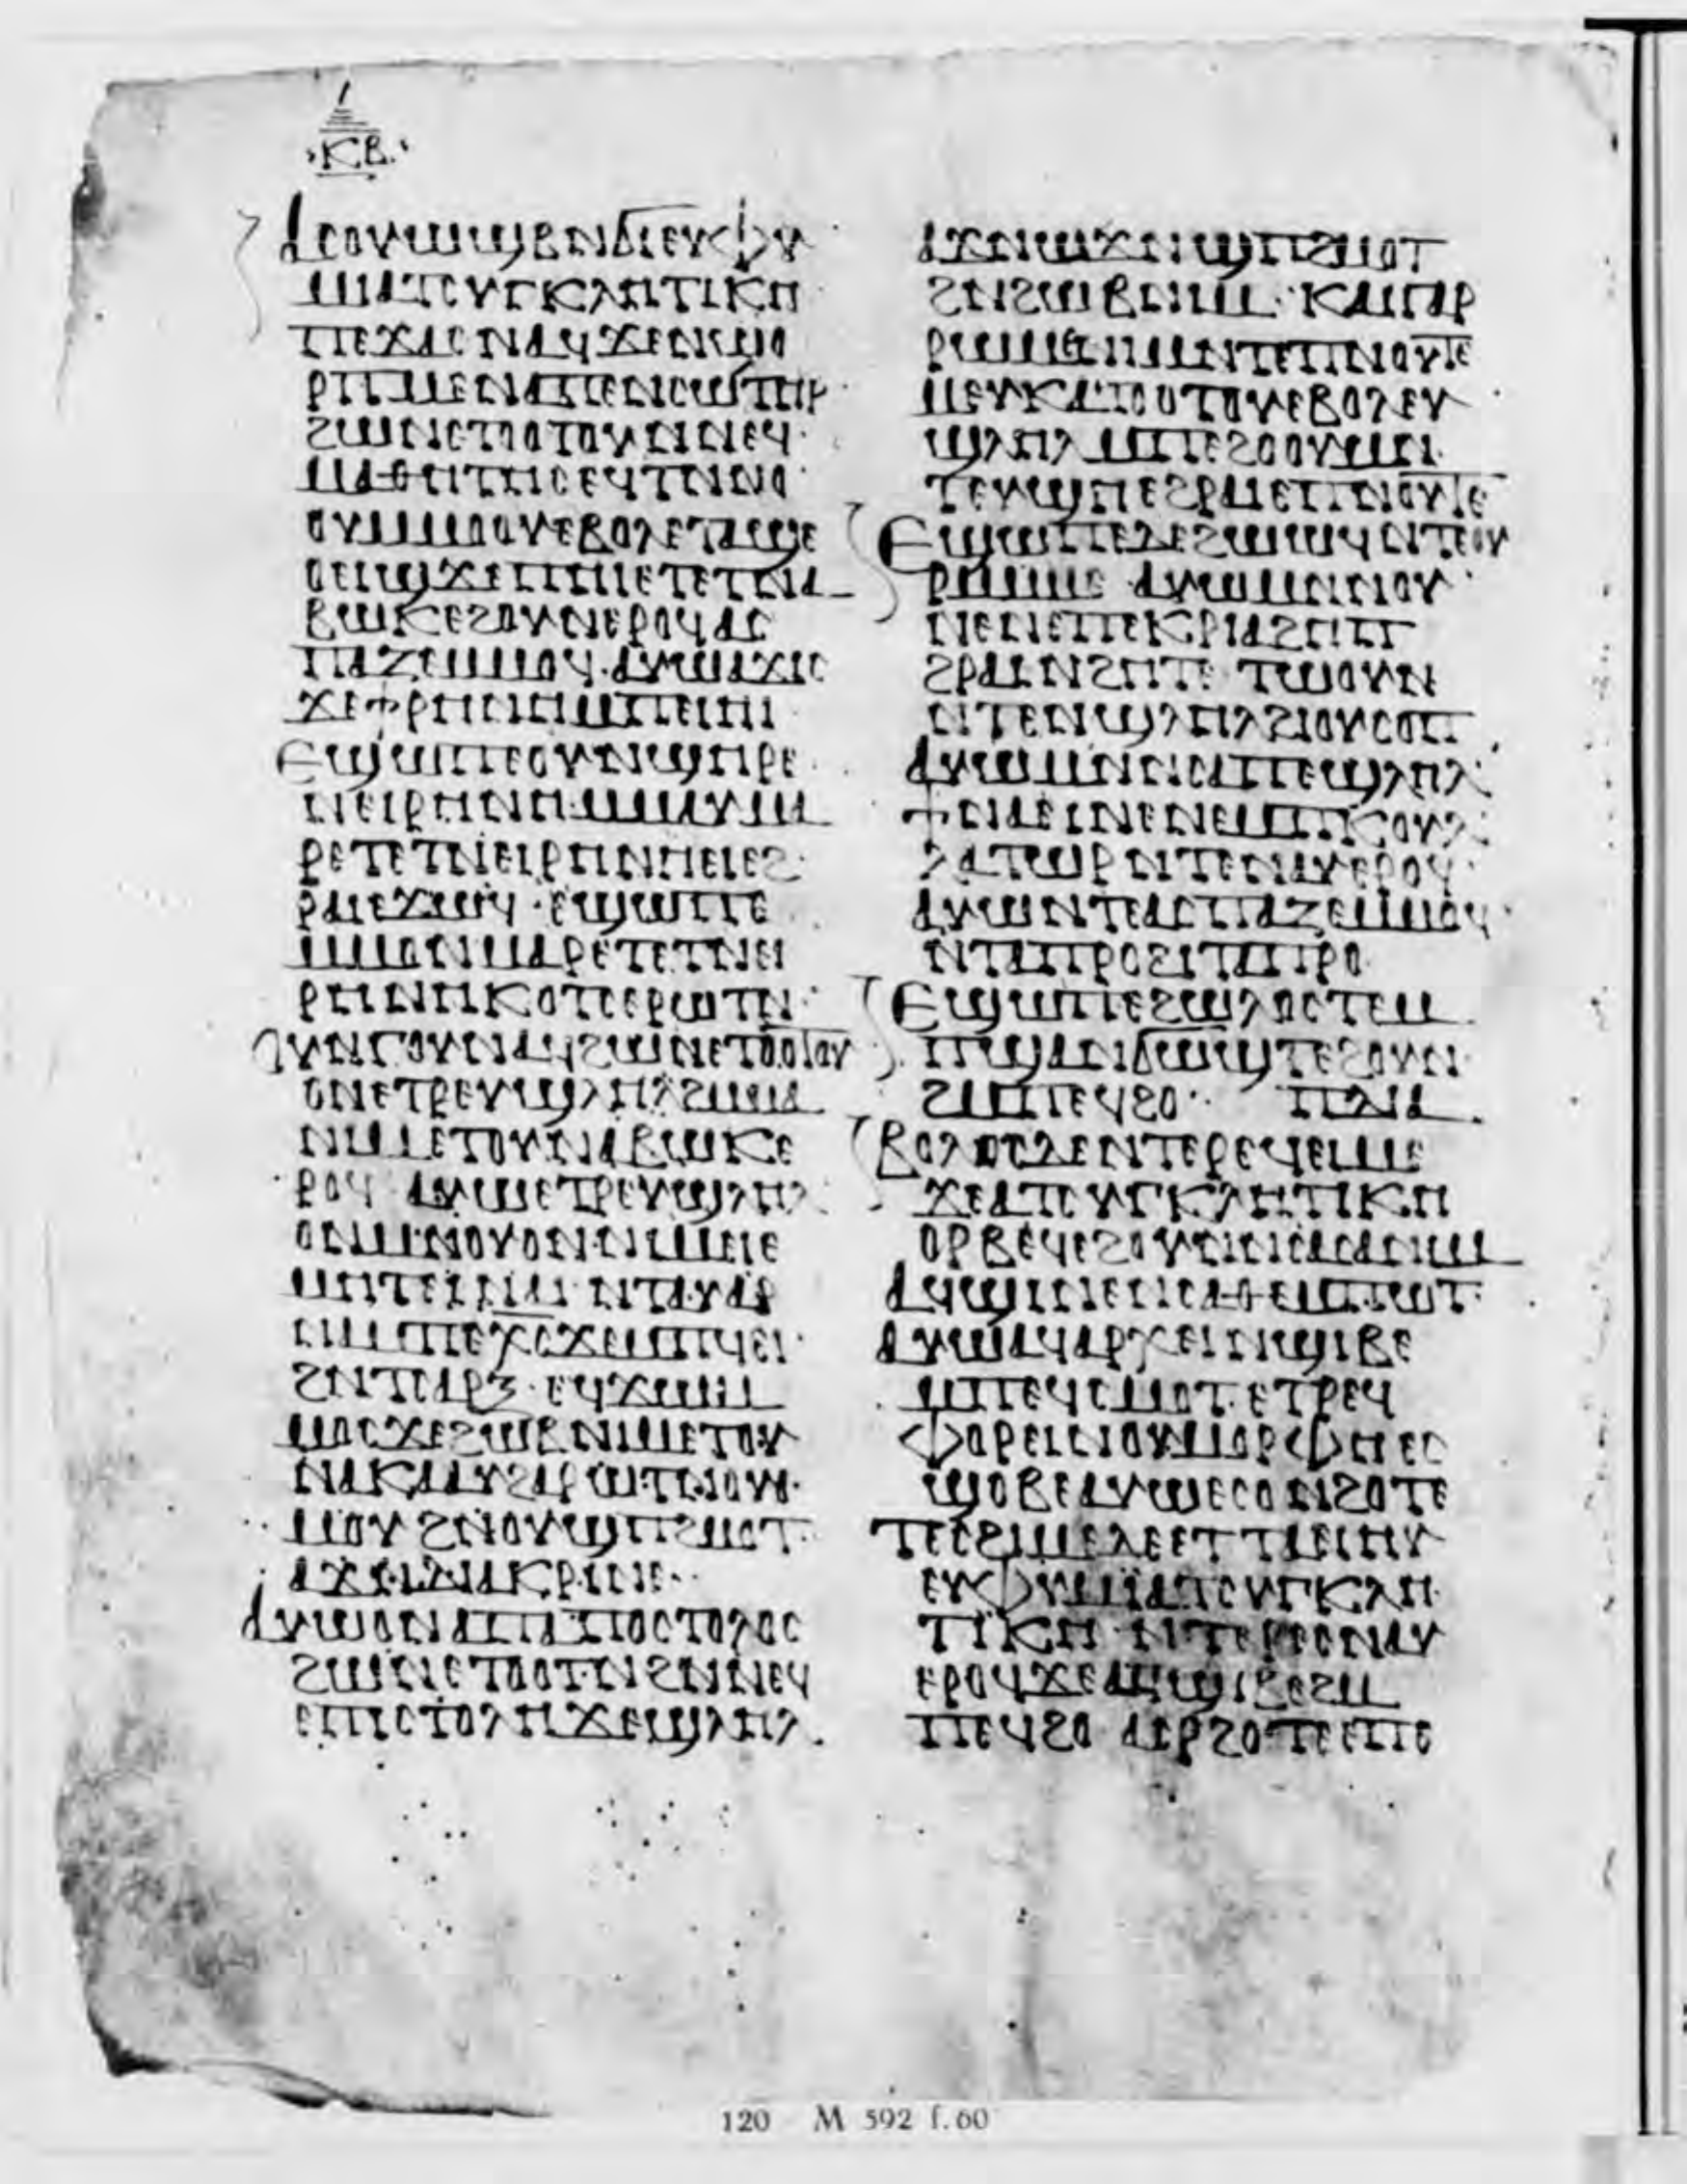 ⲕⲃ
ⲁⲥⲟⲩⲱϣⲃⲛϭⲓⲉⲩⲫⲩ
ⲙⲓⲁⲧⲥⲩⲅⲕⲗⲏⲧⲓⲕⲏ
ⲡⲉϫⲁⲥⲛⲁϥϫⲉ
ⲣⲡⲙⲉⲛⲁⲡⲉⲛⲥⲱⲧⲏⲣ
ϩⲱⲛⲉⲧⲟⲟⲧⲟⲩⲛⲛⲉϥ
ⲙⲁⲑⲏⲧⲏⲥⲉϥⲧⲛⲛⲟ
ⲟⲩⲙⲙⲟⲟⲩⲉⲃⲟⲗⲉⲧⲁϣⲉ
ⲟⲉⲓϣϫⲉⲡⲏⲓⲉⲧⲉⲧⲛⲁ
ⲃⲱⲕⲉϩⲟⲩⲛⲉⲣⲟϥⲁⲥ
ⲡⲁⲍⲉⲙⲙⲟϥ·ⲁⲩⲱⲁϫⲓⲥ
ϫⲉϯⲣⲏⲛⲏⲙⲡⲉⲓⲏⲓ
ⲉϣⲱⲡⲉⲟⲩⲛϣⲏⲣⲉ
ⲛⲉⲓⲣⲏⲛⲏⲙⲙⲁⲩⲙⲁ
ⲣⲉⲧⲉⲧⲛⲉⲓⲣⲏⲛⲏⲉⲓⲉϩ
ⲣⲁⲓⲉϫⲱϥ·ⲉϣⲱⲡⲉ
ⲙⲙⲟⲛⲙⲁⲣⲉⲧⲉⲧⲛⲉⲓ
ⲣⲏⲛⲏⲕⲟⲧⲥⲉⲣⲱⲧⲛ
ⲟⲩⲛⲅⲟⲩⲛⲁϥϩⲱⲛⲉⲧⲟⲟⲧⲟⲩ
ⲟⲛⲉⲧⲣⲉⲩϣⲗⲏⲗϩⲙⲙⲁ
ⲛⲓⲙⲉⲧⲟⲩⲛⲁⲃⲱⲕⲉ
ⲣⲟϥ ⲁⲩⲱⲉⲧⲣⲉⲩϣⲗⲏⲗ
ⲟⲛⲙⲛⲟⲩⲟⲛⲛⲓⲙⲉⲓⲉ
ⲙⲏⲧⲉⲓⲛⲁⲓ ⲛⲧⲁⲩⲁⲣ
ϫⲓⲙⲡⲉⲭⲥϫⲉⲙⲡϥⲉⲓ
ϩⲛⲧⲥⲁⲣⲝ·ⲉϥϫⲱⲙ
ⲙⲟⲥϫⲉϩⲱⲃⲛⲓⲙⲉⲧⲟⲩ
ⲛⲁⲕⲁⲁⲩϩⲁⲣⲱⲧⲛⲟⲩⲟ
ⲙⲟⲩϩⲛⲟⲩϣⲡϩⲙⲟⲧ
ⲁϫⲛⲇⲓⲁⲕⲣⲓⲛⲉ
ⲁⲩⲱⲟⲛⲁⲡⲁⲡⲟⲥⲧⲟⲗⲟⲥ
ϩⲱⲛⲉⲧⲟⲟⲧⲛϩⲛⲛⲉϥ
ⲉⲡⲓⲥⲧⲟⲗⲏϫⲉϣⲗⲏⲗ
ⲁϫⲛⲱϫⲛϣⲡϩⲙⲟⲧ
ϩⲛϩⲱⲃⲛⲓⲙ·ⲕⲁⲓⲅⲁⲣ
ⲣⲱⲙⲉⲛⲙⲛⲧⲉⲡⲛⲟⲩⲧⲉ
ⲙⲉⲩⲕⲁⲧⲟⲟⲧⲟⲩⲉⲃⲟⲗⲉⲩ
ϣⲗⲏⲗ ⲙⲡⲉϩⲟⲟⲩⲙⲛ
ⲧⲉⲩϣⲏⲉϩⲣⲁⲓⲉⲡⲛⲟⲩⲧⲉ
ⲉϣⲱⲡⲉⲇⲉϩⲱⲱϥⲛⲧⲉⲟⲩ
ⲣⲱⲙⲉ ⲁⲩⲱⲙⲛⲛⲟⲩ
ⲛⲉⲛⲉⲡⲉⲕⲣⲓⲁϩⲏⲧ
ϩⲣⲁⲓⲛϩⲏⲧϥ ⲧⲱⲟⲩⲛ
ⲛⲧⲉⲛϣⲗⲏⲗϩⲓⲟⲩⲥⲟⲡ
ⲁⲩⲱⲙⲛⲛⲥⲁⲡⲉϣⲗⲏⲗ
ϯⲛⲁⲉⲓⲛⲉⲛⲉⲙⲡⲕⲟⲩⲃ
ⲗⲁⲧⲱⲣⲛⲧⲉⲛⲁⲩⲉⲣⲟϥ
ⲁⲩⲱⲛⲧⲉⲁⲥⲡⲁⲍⲉⲙⲙⲟϥ
ⲛⲧⲁⲡⲣⲟϩⲓⲧⲁⲡⲣⲟ
ⲉϣⲱⲡⲉϩⲱⲗⲟⲥⲧⲉⲙ
ⲡϣⲁⲛϭⲱϣⲧⲉϩⲟⲩⲛ
ϩⲙⲡⲉϥϩⲟ ⲡⲇⲓⲁ
ⲃⲟⲗⲟⲥⲇⲉⲛⲧⲉⲣⲉϥⲉⲓⲙⲉ
ϫⲉⲁⲧⲥⲩⲅⲕⲗⲏⲧⲓⲕⲏ
ⲟⲣⲃⲉϥⲉϩⲟⲩⲛⲛⲥⲁⲥⲁⲛⲓⲙ
ⲁϥϣⲓⲛⲉⲛⲥⲁⲑⲉⲙⲡⲱⲧ
ⲁⲩⲱⲁϥⲁⲣⲭⲉⲓⲛϣⲓⲃⲉ
ⲙⲡⲉϥⲥⲙⲟⲧ·ⲉⲧⲣⲉϥ
ⲫⲟⲣⲉⲓⲛⲟⲩⲙⲟⲣⲫⲏⲉⲥ
ϣⲟⲃⲉⲁⲩⲱⲉⲥⲟⲛϩⲟⲧⲉ
ⲧⲉⲥϩⲓⲙⲉⲇⲉⲉⲧⲧⲁⲉⲓⲏⲩ
ⲉⲩⲫⲩⲙⲓⲁⲧⲥⲩⲅⲕⲗⲏ
ⲧⲓⲕⲏ ⲛⲧⲉⲣⲉⲥⲛⲁⲩ
ⲉⲣⲟϥϫⲉⲁϥϣⲓⲃⲉϩⲙ
ⲡⲉϥϩⲟ ⲁⲥⲣϩⲟⲧⲉⲉⲡⲉ
120 M 592 f. 60